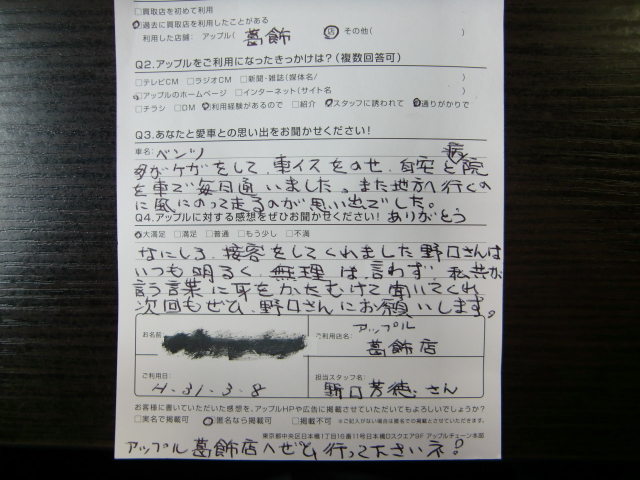 □買取店を初めて利用
□過去に買取店を利用したことがある
利用した店舗: アップル( 葛飾 店 その他( )
Q2.アップルをご利用になったきっかけは?(複数回答可)
□テレビCM □ラジオCM □新聞・雑誌(媒体名/ )
□アップルのホームページ □インターネット(サイト名 )
□チラシ □DM □利用経験があるので □紹介 □スタッフに誘われて □通りがかりで
Q3.あなたと愛車との思い出をお聞かせください!
車名: ベンツ
がケガをして、車イスをのせ、自宅と病院
を車で毎日通いました。また地方へ行くの
に風にのって走るのが思い出でした。
ありがとう
Q4.アップルに対する感想をぜひお聞かせください!
□大満足 □満足 □普通 □もう少し □不満
なにしろ、接客をしてくれました野口さんは
いつも明るく、無理は言わず、私共が
言う言葉に耳をかたむけて聞いてくれ
次回もぜひ、野口さんにお願いします。
お名前
ご利用店名: アップル
葛飾店
ご利用日:
H・31・3・8
担当スタッフ名:
野口芳徳さん
お客様に書いていただいた感想を、アップルHPや広告に掲載させていただいてもよろしいでしょうか?
□実名で掲載可 □匿名なら掲載可 □掲載不可 ※ご記入がない場合は匿名での掲載とさせていただきます。
東京都中央区日本橋1丁目16番11号日本橋Dスクエア9F アップルチェーン本部
アップル葛飾店へぜひ行って下さいネ!